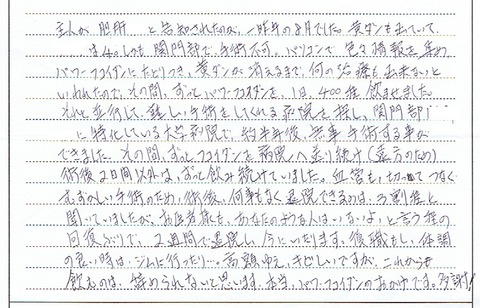 主人が 胆肝 と告知されたのが、一昨年の8月でした。黄ダンも出ていて、
は4。しかも 関門部で、手術不可。パソコンで 色々情報を集め
パワーフコイダンにたどりつき、黄ダンが消えるまで、何の治療も出来ないと
いわれたので、その間、ずっとパワーフコイダンを、1日、400程飲ませました。
それと並行して、難しい手術をしてくれる病院を探し、関門部
に特化している大学病院で、約半年後、無事手術する事が
できました。その間、ずっとフコイダンを病院へ送り続け(遠方のため)
術後2日間以外は、ずっと飲み続けていました。血管も、切ってつなぐ
むずかしい手術のため、術後、何事もなく退院できるのは、3割程と
聞いていましたが、お医者様も、あなたのような人はいないよ、と言う程の
回復ぶりで、2週間で退院し、今にいたります。復職もし、体調
の良い時は、ジムに行ったり…。高額ゆえ、きびしいですが、これからも
飲むのは、辞められないと思います。本当、パワーフコイダンのおかげです。多謝!